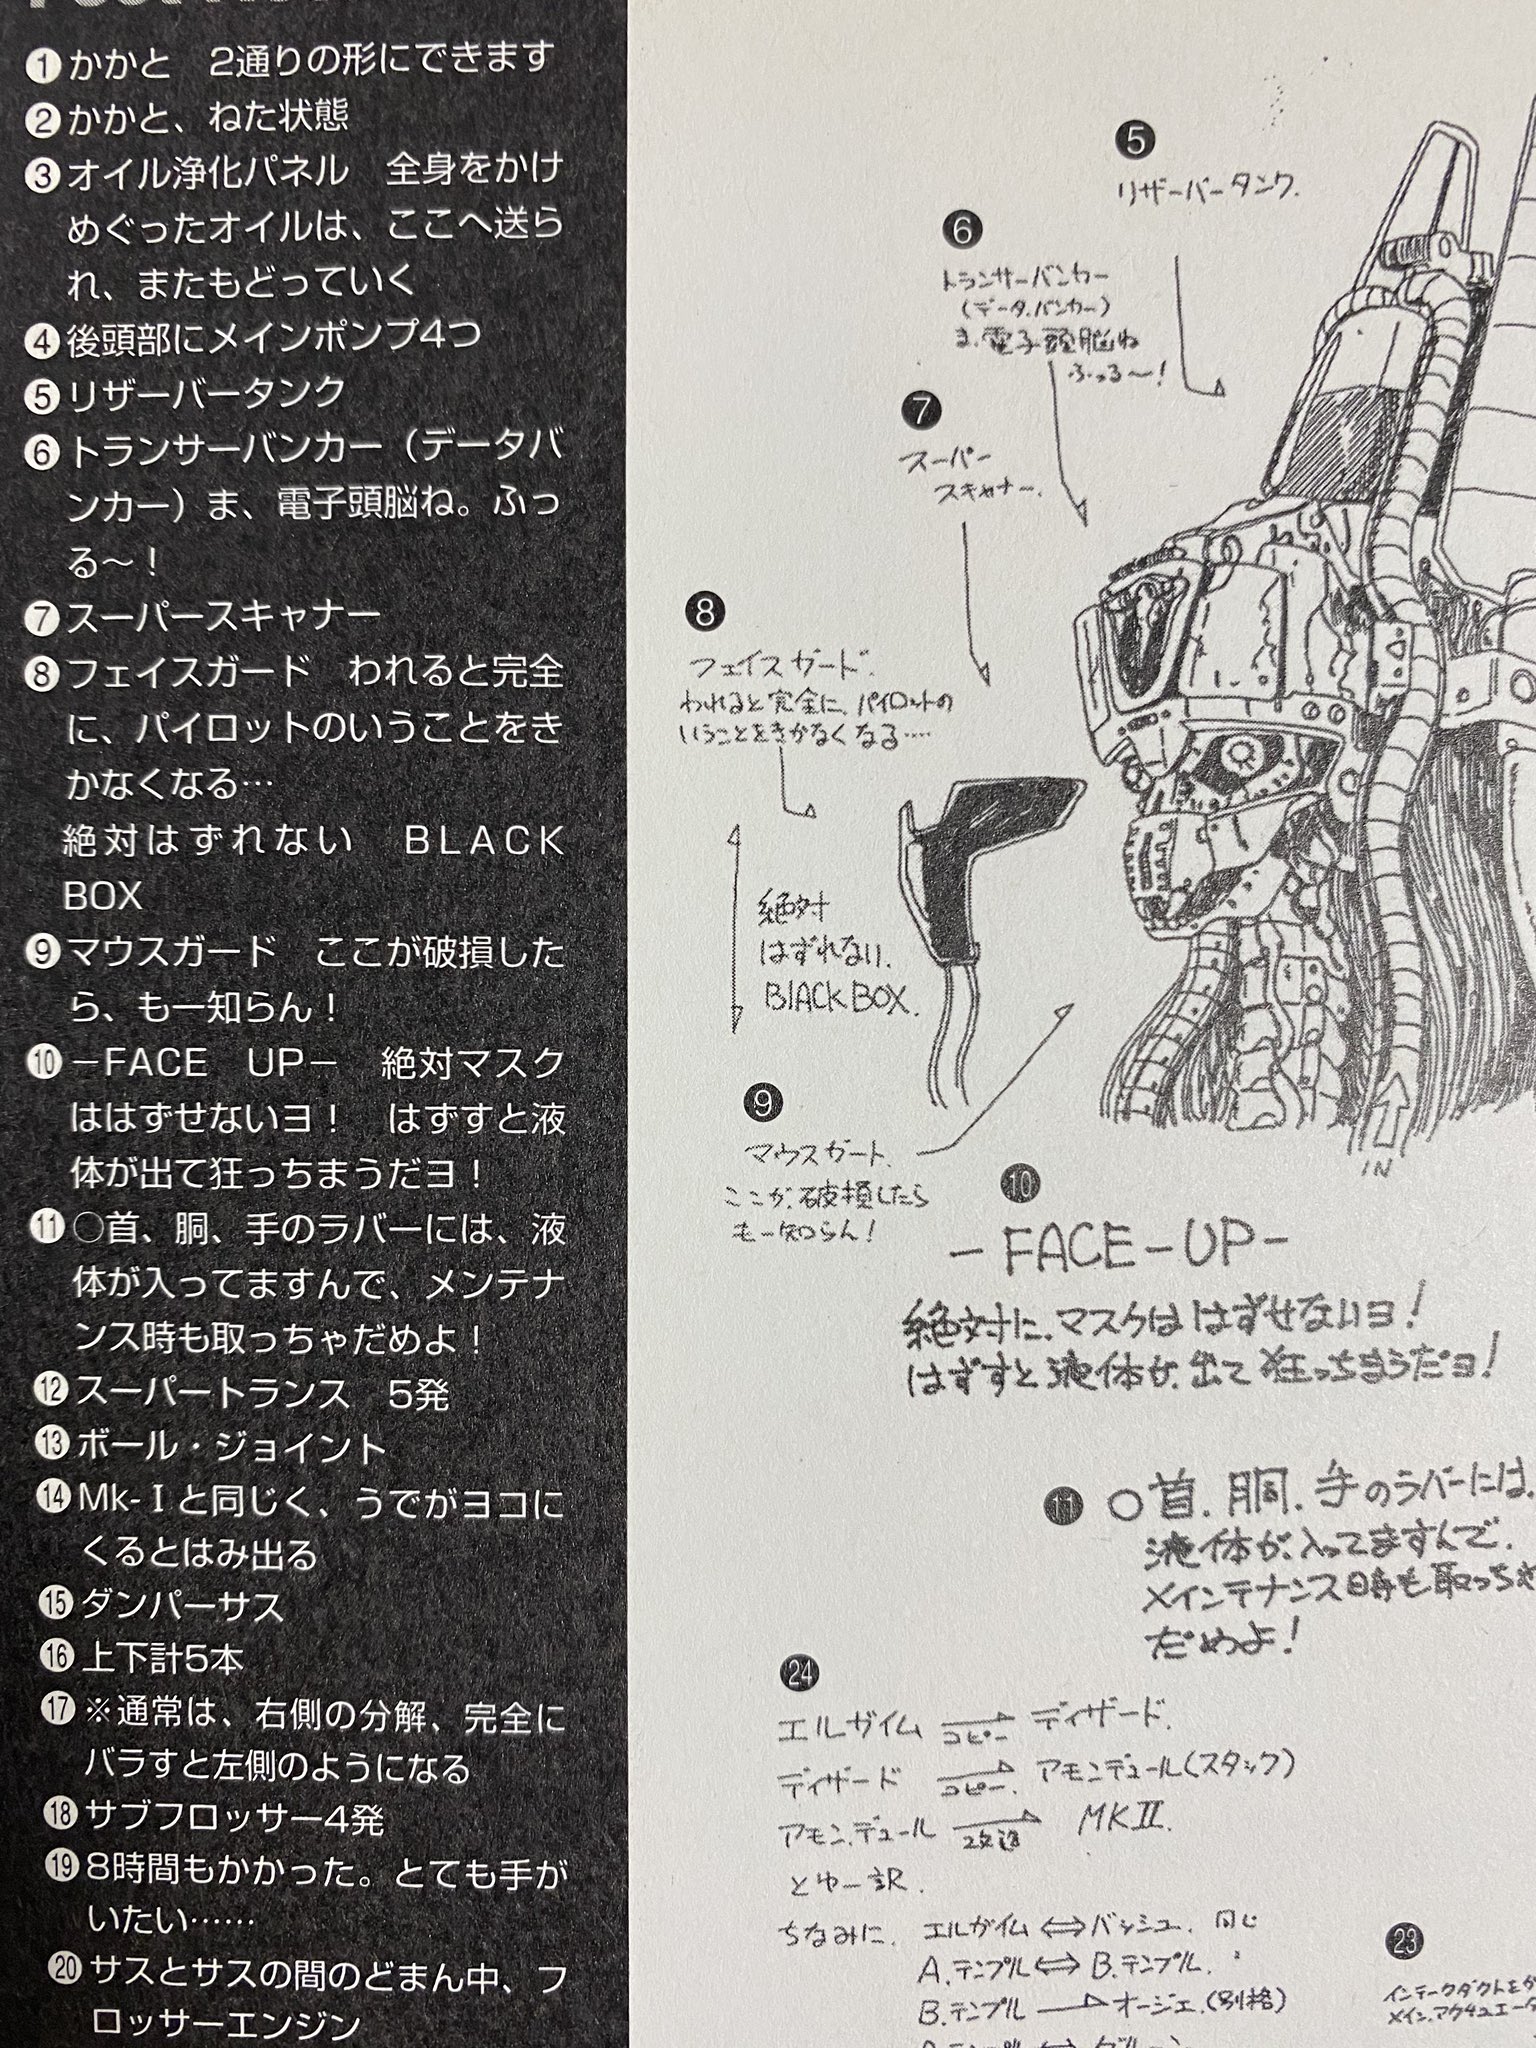 ❶かかと　2通りの形にできます
❷かかと、ねた状態
❸オイル浄化パネル　全身をかけ
めぐったオイルは、ここへ送ら
れ、またもどっていく
❹後頭部にメインポンプ4つ
❺リザーバータンク
❻トランサーバンカー（データバ
ンカー）ま、電子頭脳ね。ふっ
る〜！
❼スーパースキャナー
❽フェイスガード　われると完全
に、パイロットのいうことをき
かなくなる…
絶対はずれない　BLACK
BOX
❾マウスガード　ここが破損した
ら、も一知らん！
❿－FACE　UP－　絶対マスク
ははずせないヨ！　はずすと液
体が出て狂っちまうだヨ！
⓫○首、胴、手のラバーには、液
体が入ってますんで、メンテナ
ンス時も取っちゃだめよ！
⓬スーパートランス　5発
⓭ボール・ジョイント
⓮Mk-Ⅰと同じく、うでがヨコに
くるとはみ出る
⓯ダンパーサス
⓰上下計5本
⓱※通常は、右側の分解、完全に
バラすと左側のようになる
⓲サブフロッサー4発
⓳8時間もかかった。とても手が
いたい……
⓴サスとサスの間のどまん中、フ
ロッサーエンジン
❺
リザーバータンク.
❻
トランサーバンカー
(データ.バンカー)
ま.電子頭脳ね
ふっる〜!
❼
スーパー
スキャナー.
❽
フェイスガード.
われると完全に.パイロットの
いうことをきかなくなる‥‥
絶対
はずれない.
BlACK BOX.
❾
マウスガート.
ここが.破損したら
も一知らん!
IN
❿
－FACE－UP－
絶対に.マスクははずせないヨ!
はずすと液体が.出て狂っちまうだヨ!
⓫ ○首.胴.手のラバーには.
液体が.入ってますんで.
メインテナンス時も取っちゃ
だめよ!
㉔
エルガイム コピー ディザード.
ディザード コピー. アモンデュール(スタック)
アモン.デュール 改造 MKⅡ.
とゆー訳.
ちなみに. エルガイム⇔バッシュ. 同じ
A.テンプル⇔B.テンプル. 〃
B.テンプル→オージェ.(別格)
㉓
インテークダクトをか
メイン.アクチュエータ